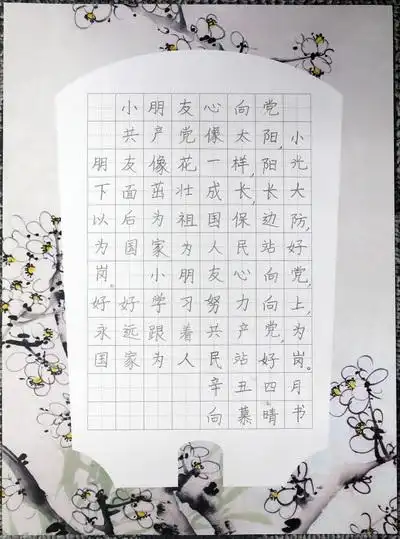 小朋友心向党
共产党像太阳,小
朋友像花一样,阳光
下面茁壮成长,长大
以后为祖国保边防,
为国家为人民站好
岗。小朋友心向党,
好好学习努力向上,
永远跟着共产党,为
国家为人民站好岗。
辛丑四月
向慕晴书